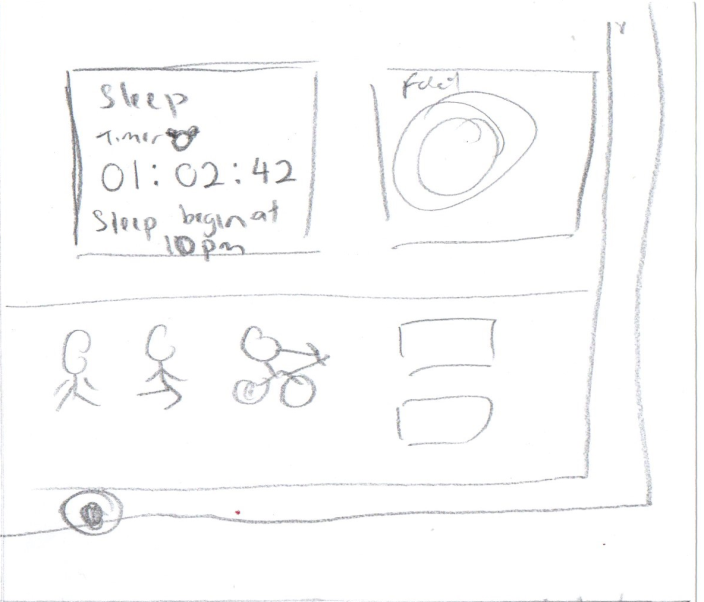 Sleep
Timer
01:02:42
Sleep begin at
10pm